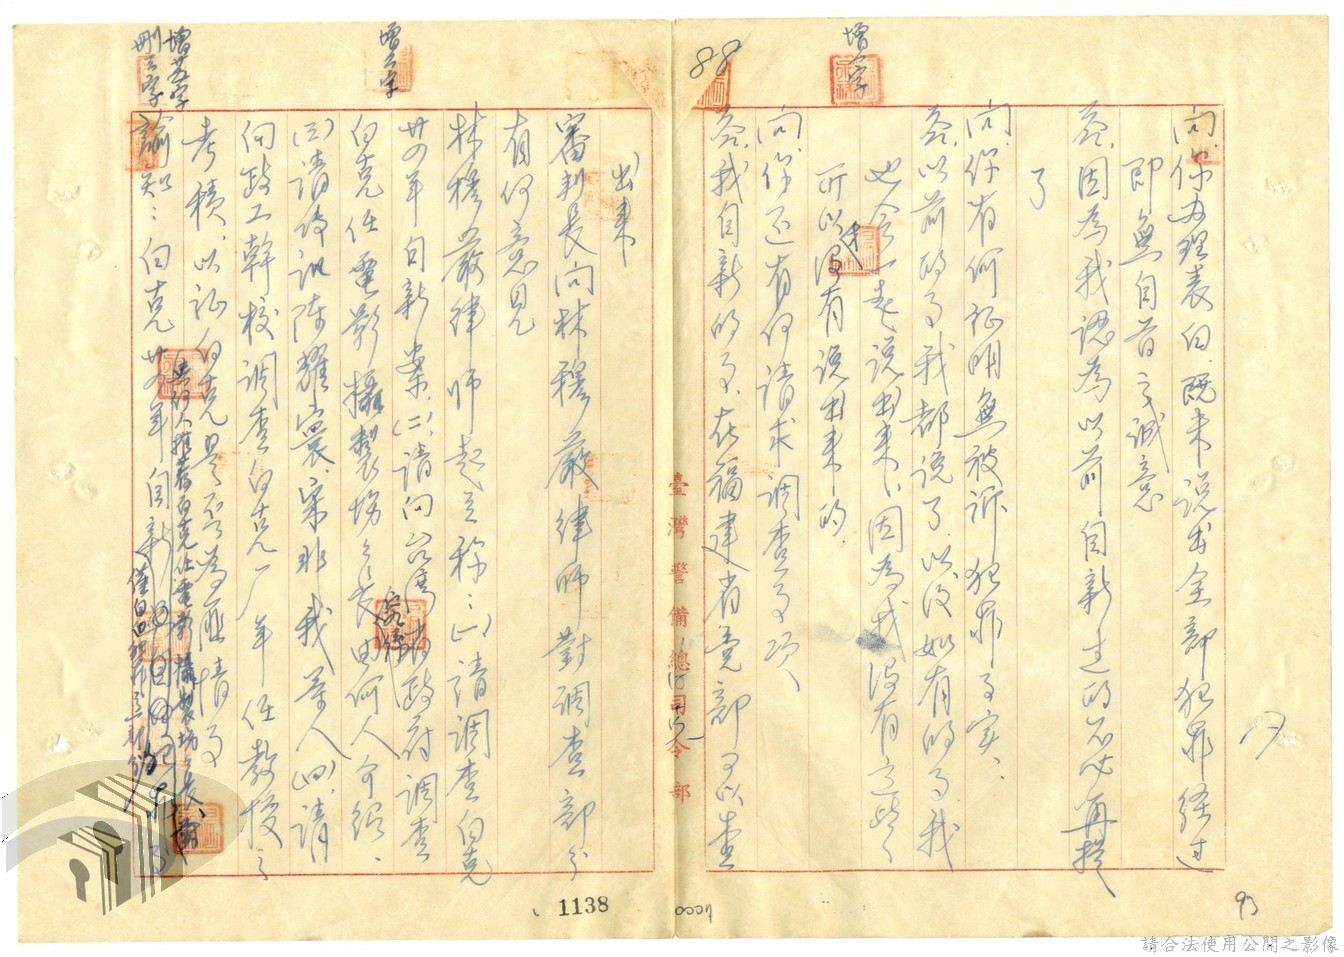 問、你辦理表白、既未說出全部犯罪經過
即無自首之誠意
答、因為我認為以前自新過的不必再提
了
問、你有何証明無被訴犯罪事實、
答、以前的事我都說了、以後如有的事我
也會一起說出來、因為我沒有這些、
所以我沒有說出來的、
問、你还有何請求調查事項、
答、我自新的事、在福建省党部可以查
出來
審判長問林穆嚴律師對調查部分
有何意見
林穆嚴律師起立称：㈠請調查白克
廿四年自新案、㈡、請向台湾省政府調查
白克任電影攝製場場長、由何人介紹、
㈢請傳訊陈耀寰、案非我筆人㈣、請
向政工幹校調查白克厂年任教授之
考積、以証白克是否為匪情事
諭知：白克廿四年自新
係何人推荐白克任電影攝製場場長、
增一字
增二字
增廿字
刪三字
臺灣警備總司令部
88
93
1138
請合法使用公開之影像